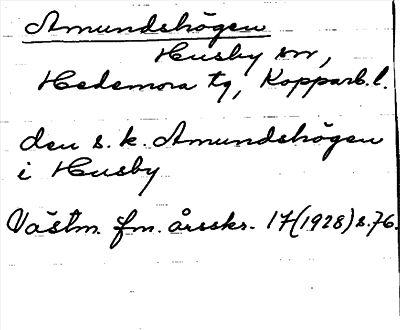 Amundshögen
Husby sn,
Hedemora tg, Kopparb. l.
den s. k. Amundshögen
i Husby
Västm. fm. årsskr. 17 (1928) s. 76.